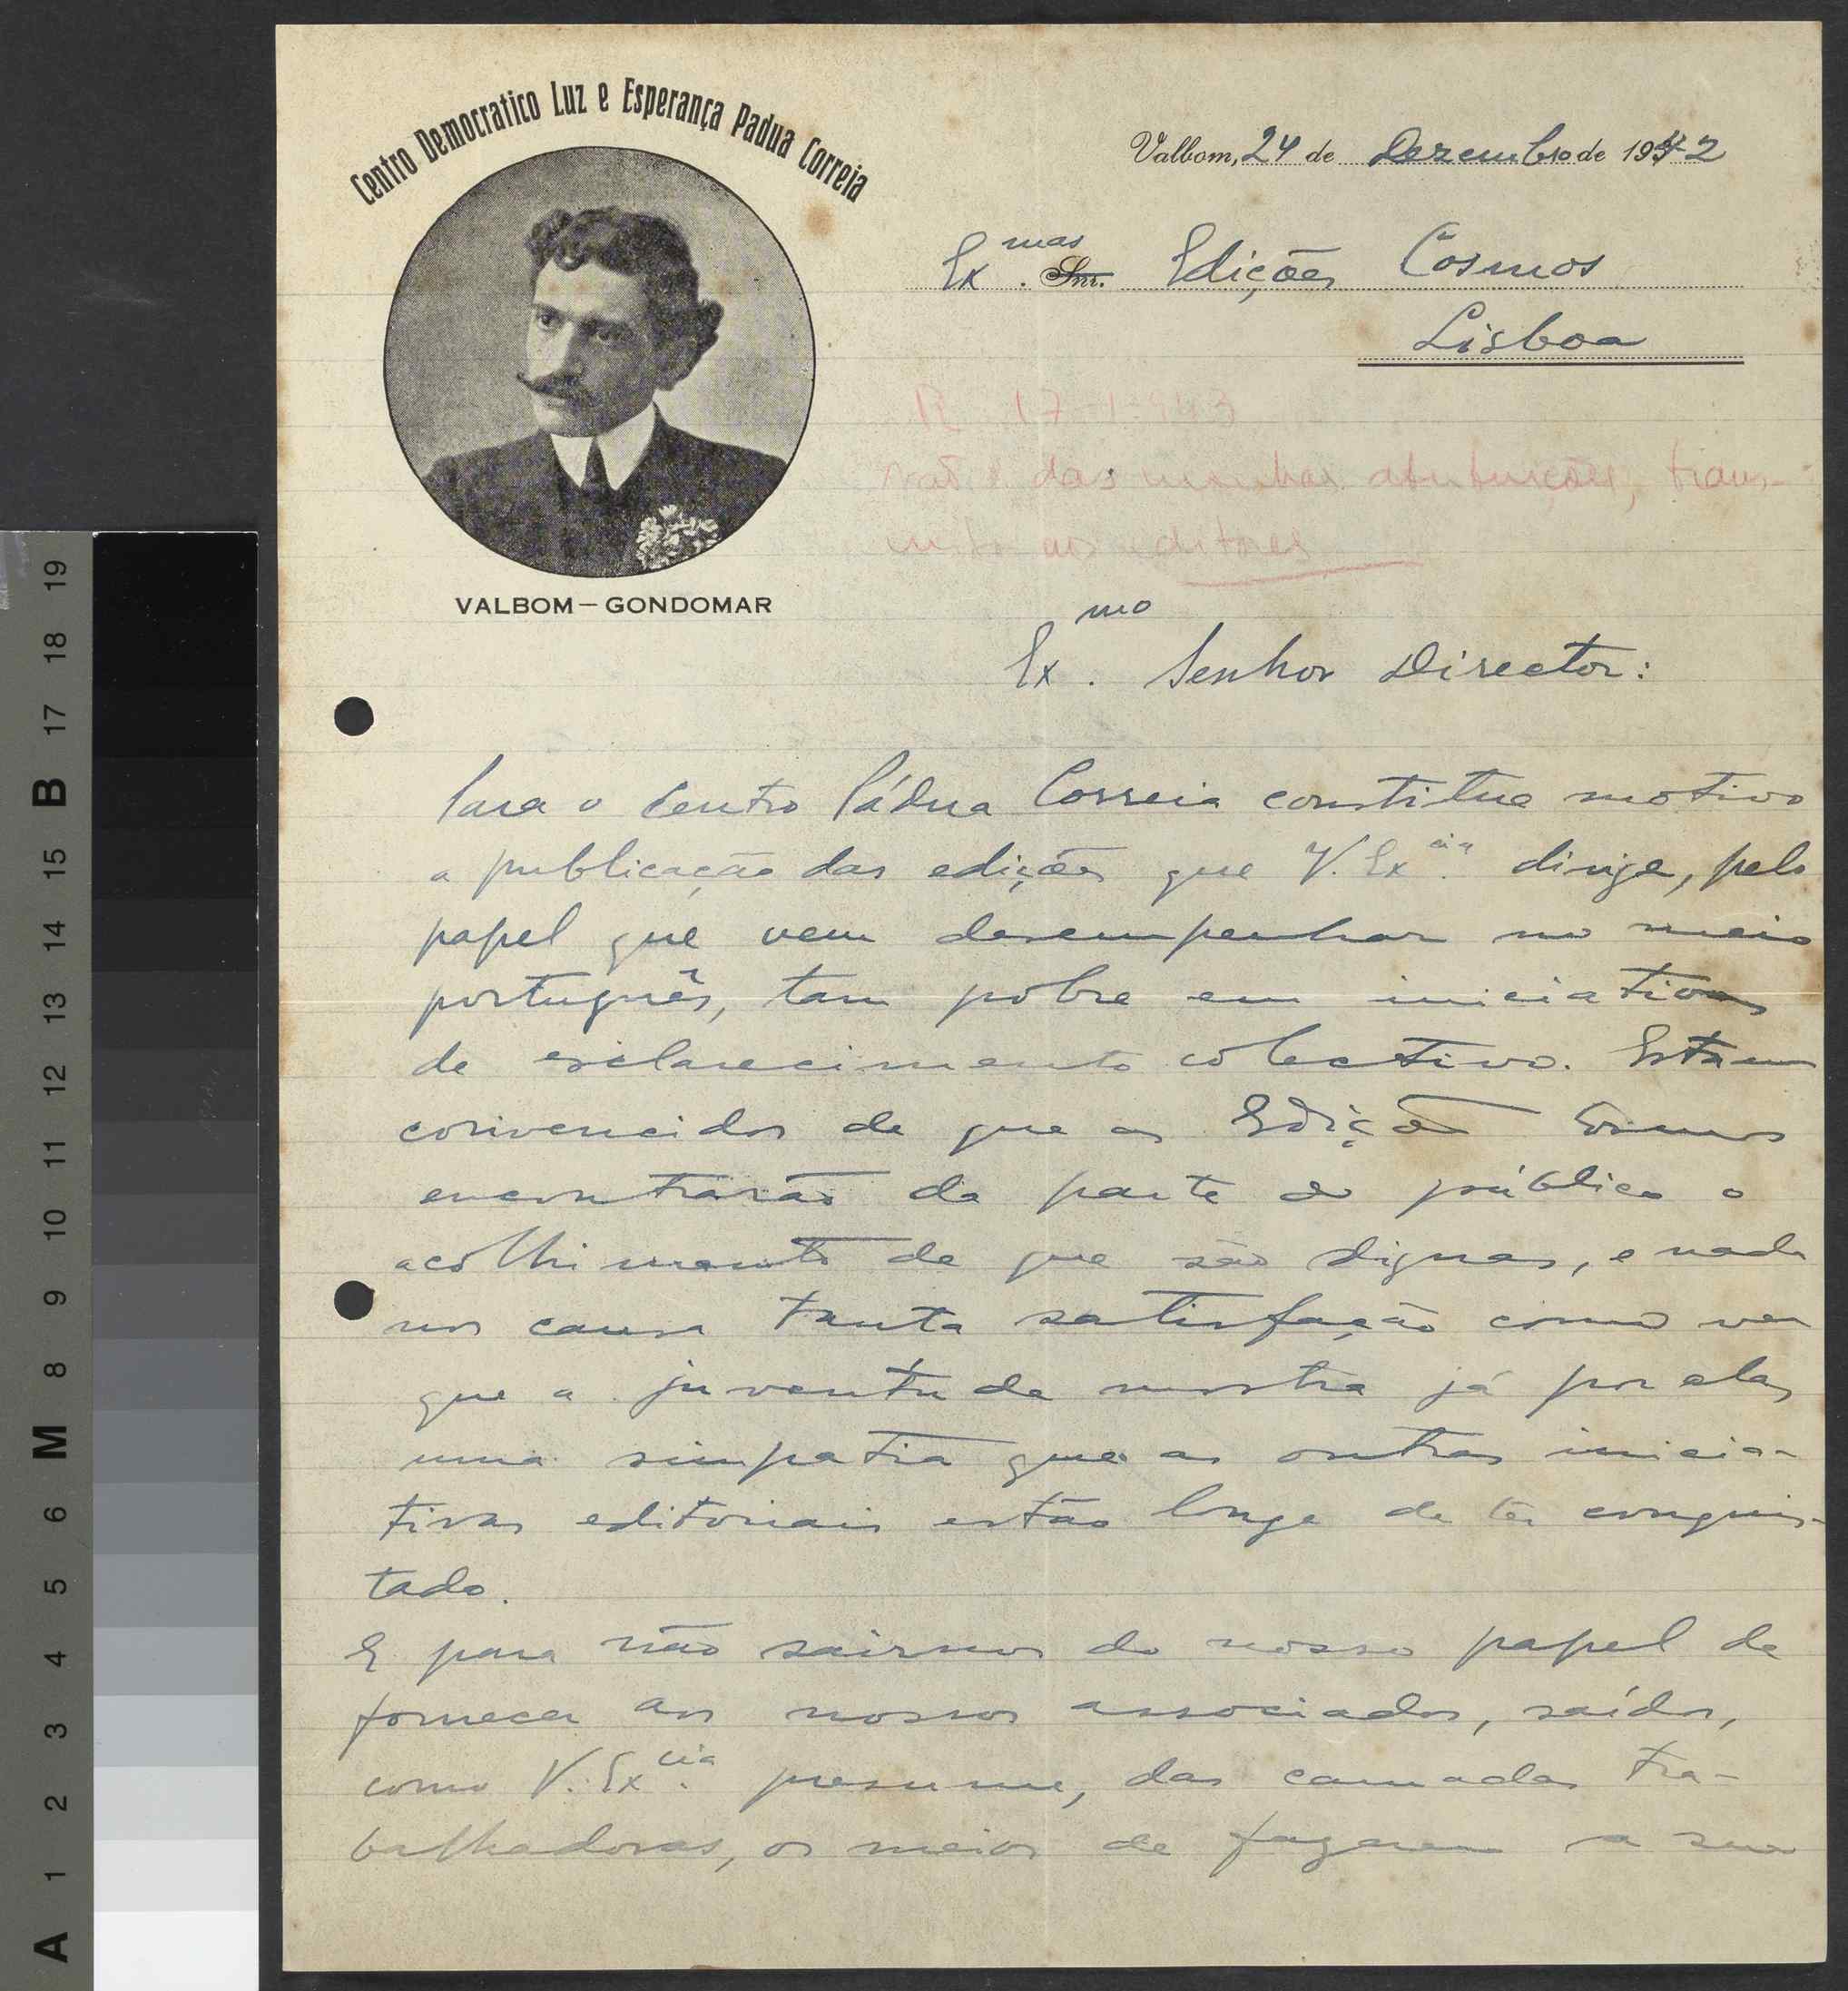 Centro Democratico Luz e Esperança Padua Correia
VALBOM - GONDOMAR
Valbom, 24 de Dezembro de 1942
Ex.mas Snr. Edições Cosmos
Lisboa
R 17-1-943
não é das minhas atribuições, trans-
mito aos editores
Ex.mo Senhor Director:
Para o Centro Pádua Correia constitue motivo
a publicação das edições que V. Ex.cia dirige, pelo
papel que vem desempenhar no meio
português, tam pobre em iniciativas
de esclarecimento colectivo. Estamos
convencidos de que as Edições Cosmos
encontrarão da parte do público o
acolhimento de que são dignas, e nada
nos causa tanta satisfação como ver
que a juventude mostra já por elas
uma simpatia que as outras inicia-
tivas editoriais estão longe de ter conquis-
tado.
E para não sairmos do nosso papel de
fornecer aos nossos associados, saídos,
como V. Ex.cia presume, das camadas tra-
balhadoras, os meios de fazerem a sua
A 1 2 3 4 5 6 M 8 9 10 11 12 13 14 15 B 17 18 19